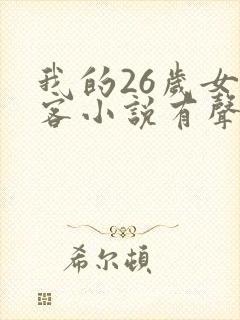 我的26歲女
客小說有聲
希尔頓